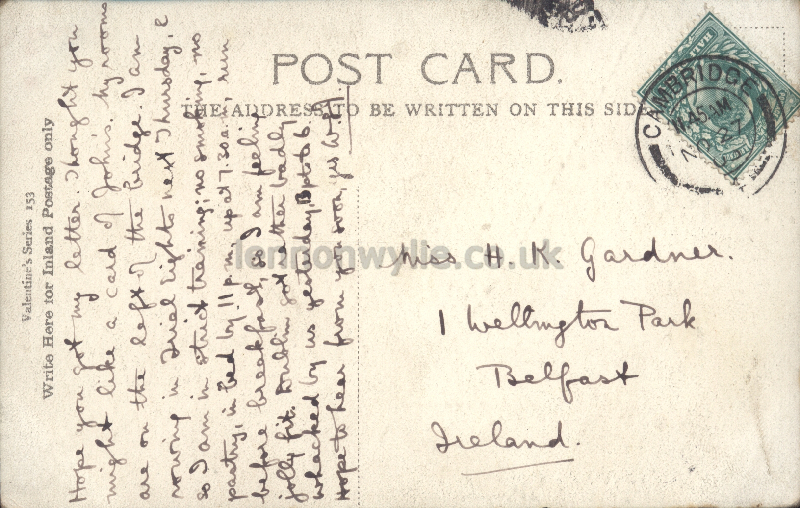 POST CARD.
THE ADDRESS TO BE WRITTEN ON THIS SIDE
Valentine's Series 153
Write Here for Inland Postage only
Hope you got my letter. Thought you
might like a card of John's. My rooms
are on the left of the bridge. I am
rowing in Trial Eights next Thursday, &
so I am in strict training; no smoking, no
pastry, in bed by 11 p.m., up at 7.30 a.m., run
before breakfast, so I am feeling
jolly fit. Dublin got rather badly
whacked by us yesterday, 13 pts to 6.
Hope to hear from you soon, yrs
Miss H. K. Gardner.
1 Wellington Park
Belfast
Ireland.
CAMBRIDGE
11.45 AM
NO 27
HALF
lennonwylie.co.uk